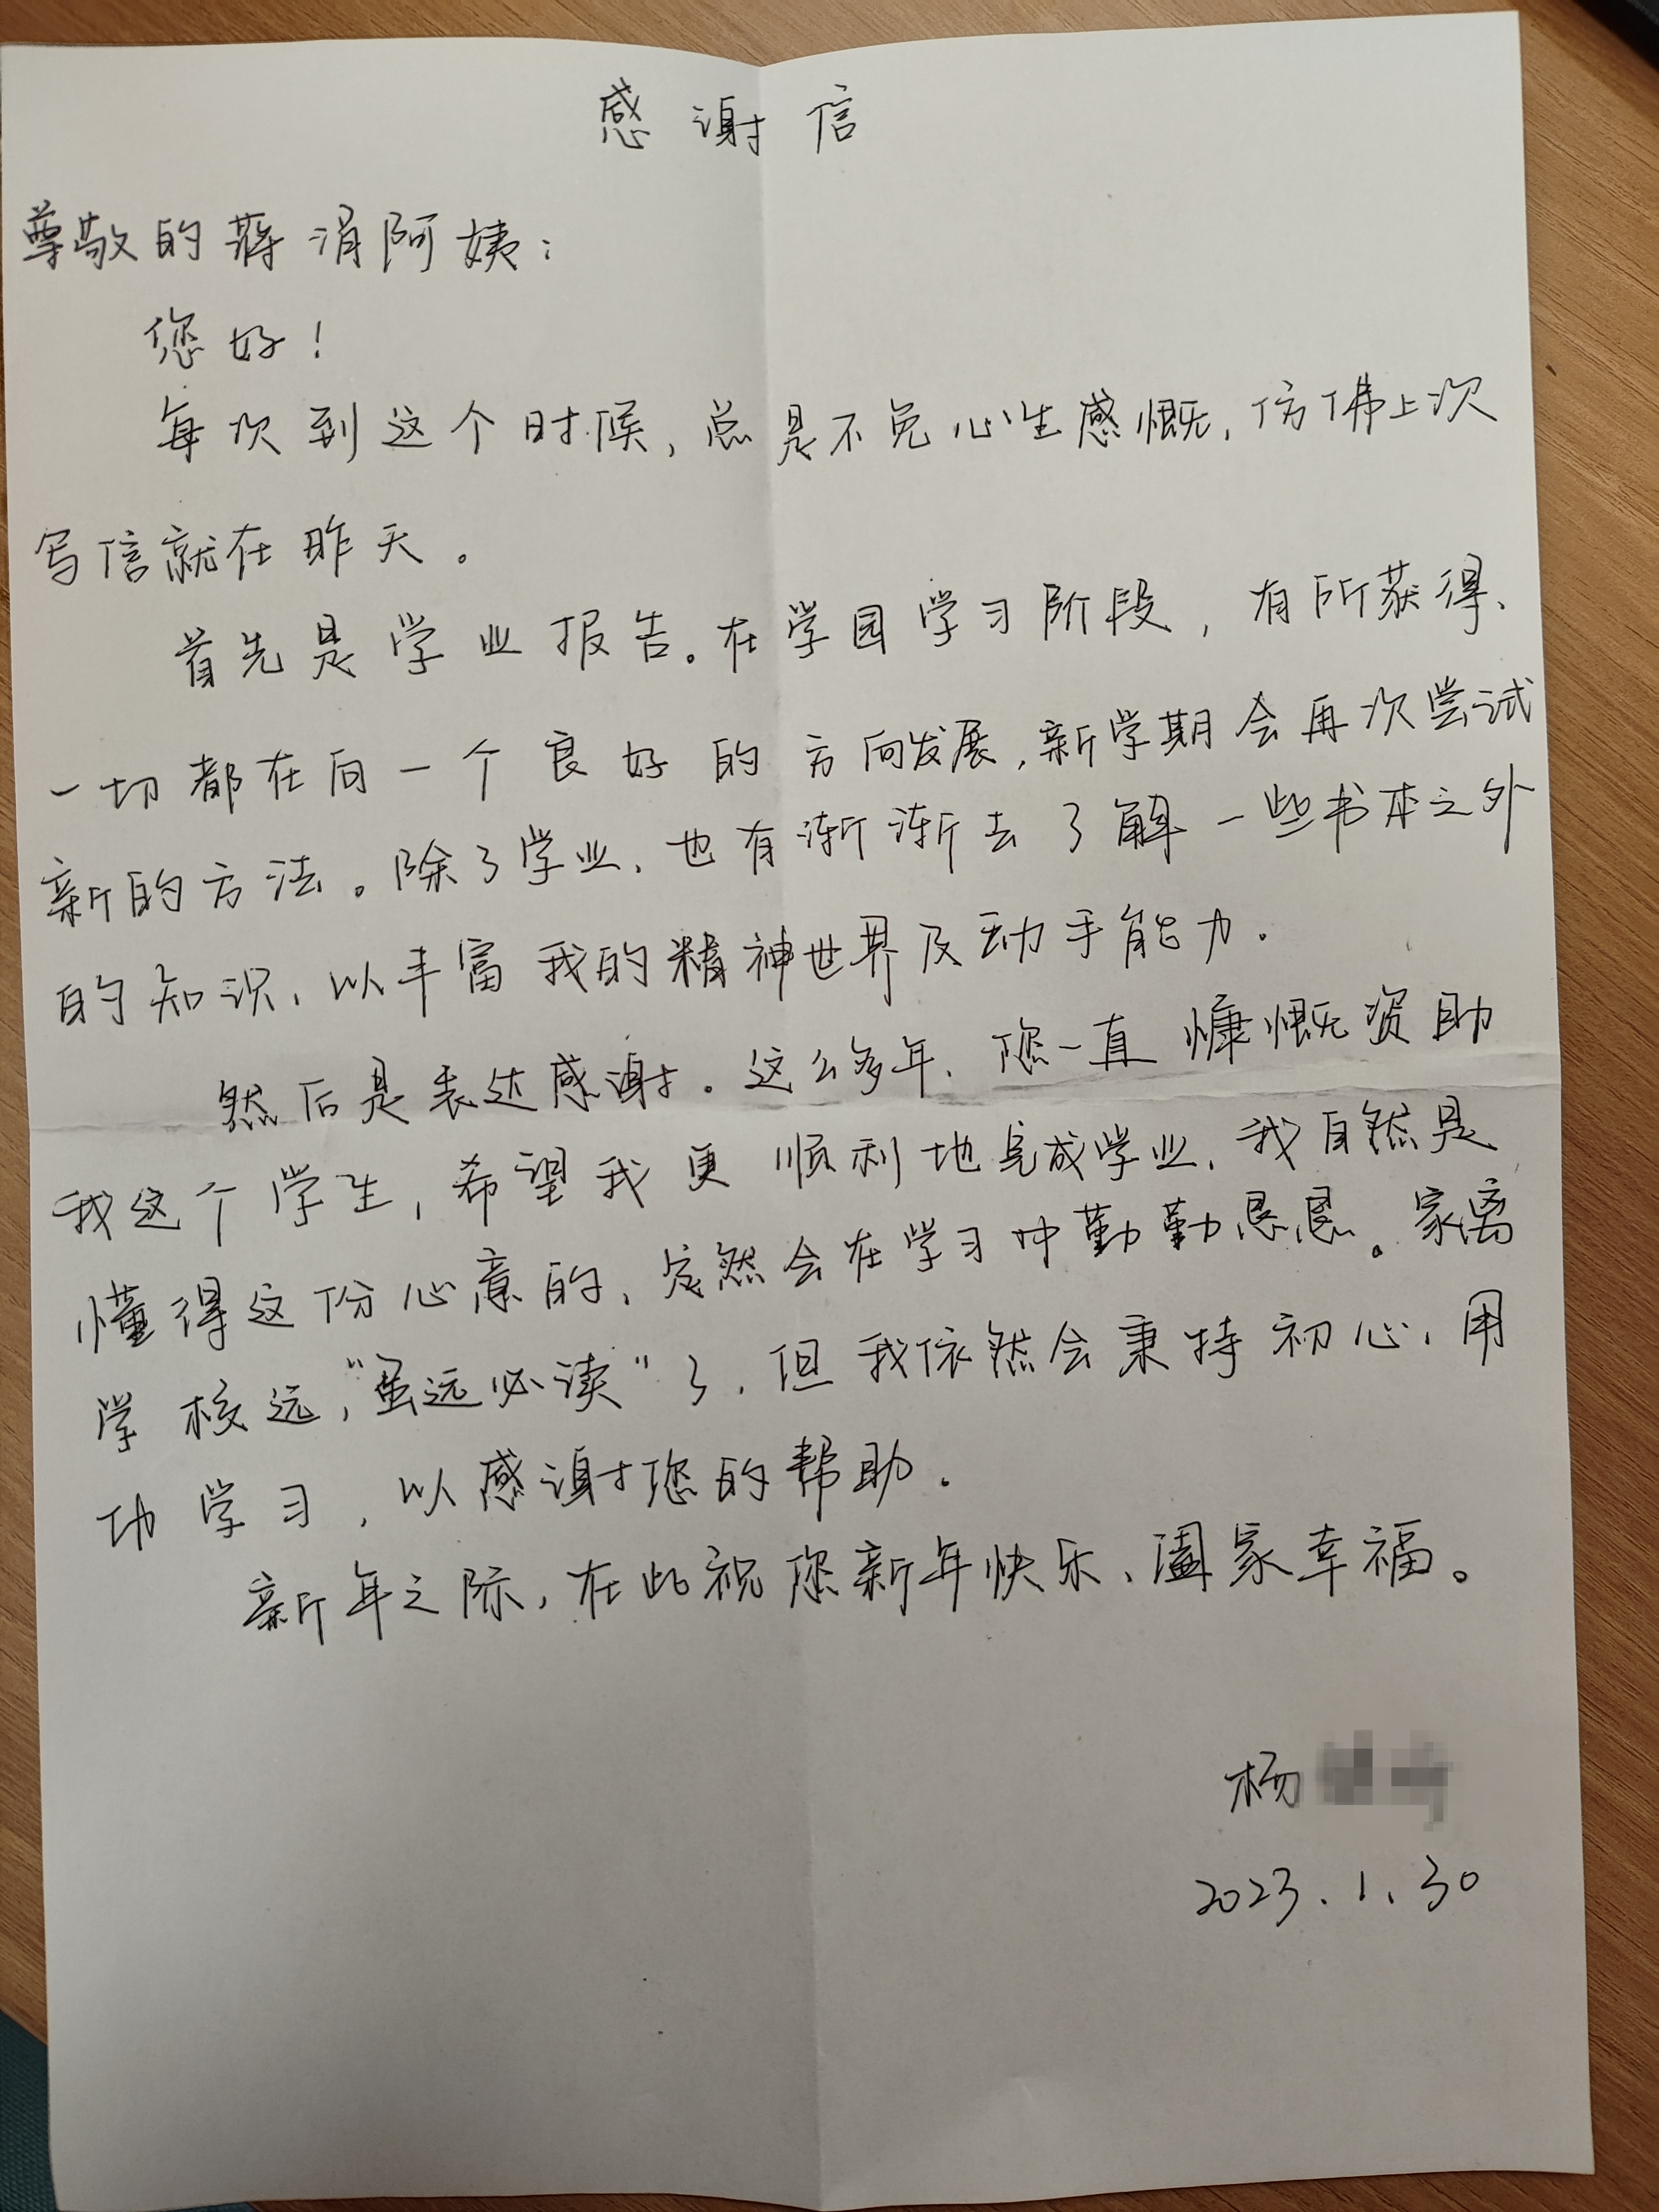 感谢信
尊敬的蒋涓阿姨：
您好！
每次到这个时候，总是不免心生感慨，仿佛上次
写信就在昨天。
首先是学业报告。在学园学习阶段，有所获得、
一切都在向一个良好的方向发展，新学期会再次尝试
新的方法。除了学业，也有渐渐去了解一些书本之外
的知识，以丰富我的精神世界及动手能力.
然后是表达感谢。这么多年，您一直慷慨资助
我这个学生，希望我更顺利地完成学业，我自然是
懂得这份心意的，定然会在学习中勤勤恳恳。家离
学校远，“虽远必读”了，但我依然会秉持初心，用
功学习，以感谢您的帮助.
新年之际，在此祝您新年快乐、阖家幸福。
杨
2023.1.30